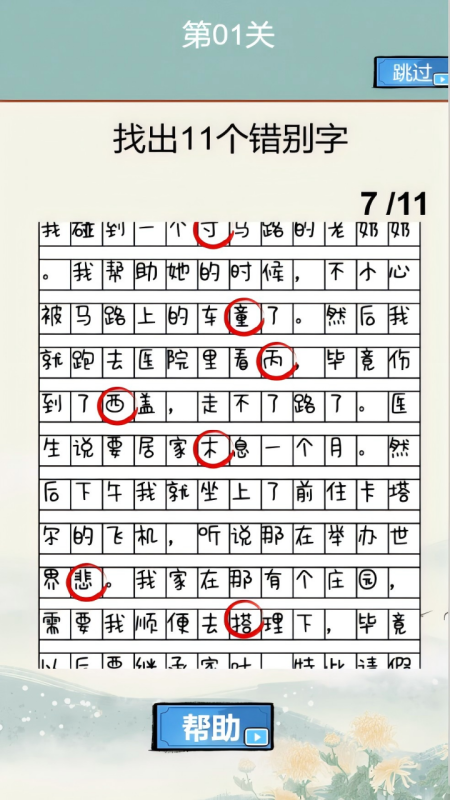 第01关
跳过
找出11个错别字
7 /11
我碰到一个寸马路的老奶奶
。我帮助她的时候，不小心
被马路上的车童了。然后我
就跑去医院里看丙，毕竟伤
到了西盖，走不了路了。医
生说要居家木息一个月。然
后下午我就坐上了前住卡塔
尔的飞机，听说那在举办世
界悲。我家在那有个庄园，
需要我顺便去搭理下，毕竟
以后要继承家叶，特此请假
帮助